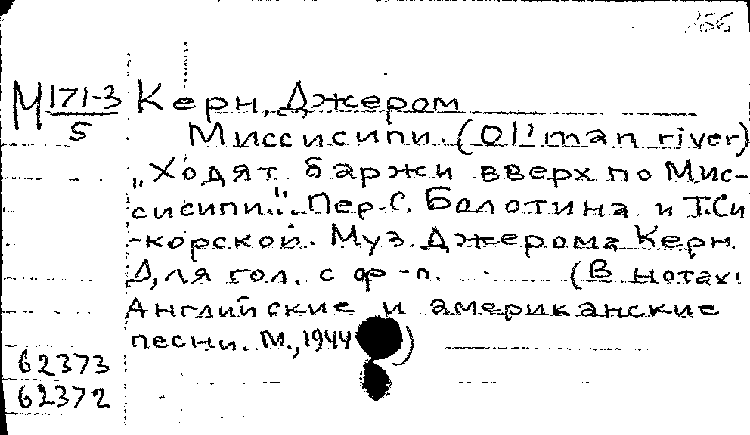 166
М 171-3/5 Керн, Джером
Миссисипи. (Ol' man river)
„Ходят баржи вверх по Мис-
сисипи." Пер. С. Болотина и Т. Си
-корской. Муз. Джерома Керн.
Для гол. с ф-п. (В нотах:
Английские и американские
песни. М., 1944 )
62373
62372